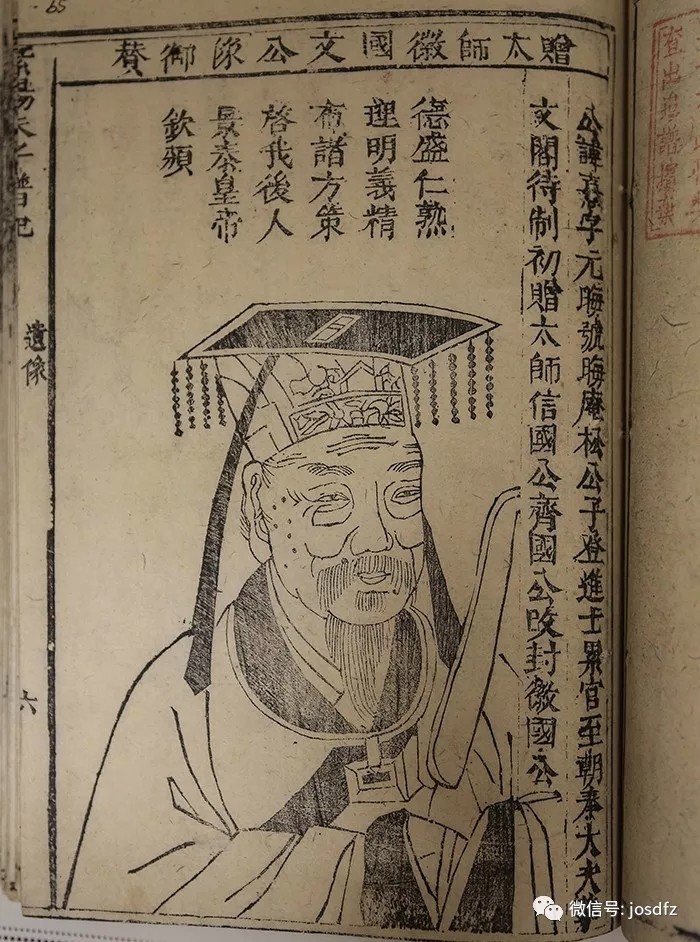 贈太師徽國文公像御賛
公諱熹字元晦號晦庵松公子登進士累官至朝奉大夫
文閣待制初贈太師信國公齊國公改封徽國公
德盛仁熟
理明義精
布諸方策
啓我後人
景泰皇帝
欽頒
遺像
六
65
微信号: josdfz